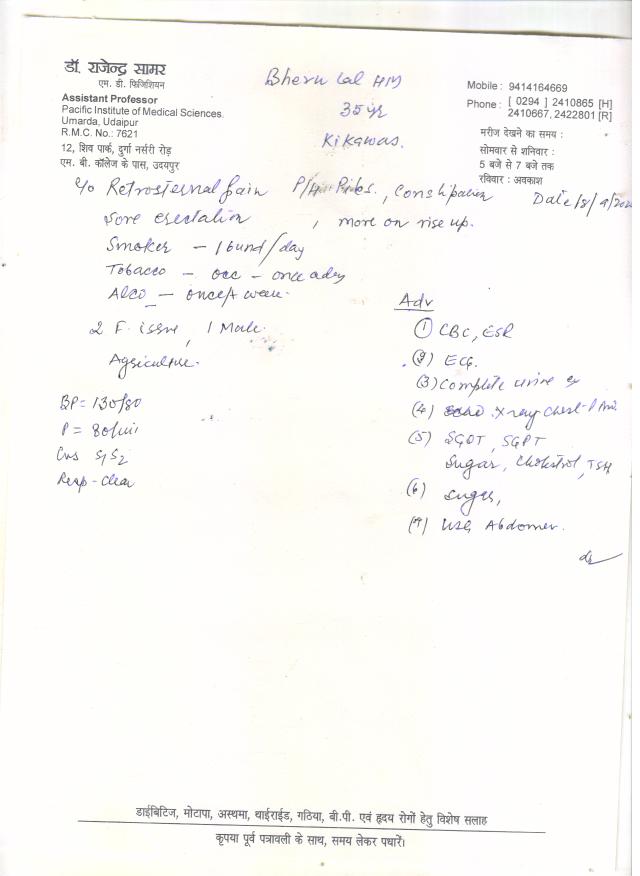 डॉ. राजेन्द्र सामर
एम. डी. फिजिशियन
Assistant Professor
Pacific Institute of Medical Sciences.
Umarda, Udaipur
R.M.C. No.: 7621
12, शिव पार्क, दुर्गा नर्सरी रोड़
एम. बी. कॉलेज के पास, उदयपुर
Bheru Lal HM
35 yr
Kikawas.
Mobile : 9414164669
Phone : [ 0294 ] 2410865 [H]
2410667, 2422801 [R]
मरीज देखने का समय :
सोमवार से शनिवार :
5 बजे से 7 बजे तक
रविवार : अवकाश
Date 18/9/20
Retrosternal pain P/H Piles, Constipation
, more on rise up.
Smoker – 1 bund/day
Tobacco – occ – once a day
Alco – once/week.
2 F. issue, 1 Male.
Agriculture.
BP = 130/80
P = 80/min
Cvs S1S2
Resp – Clear
Adv
(1) CBC, ESR
(2) ECG.
(3) Complete urine ex
(4) X ray Chest-P
(5) SGOT, SGPT
Sugar, Cholestrol, TSH
(6) Sugar,
(7) USG Abdomen.
डाईबिटिज, मोटापा, अस्थमा, थाईराईड, गठिया, बी.पी. एवं हृदय रोगों हेतु विशेष सलाह
कृपया पूर्व पत्रावली के साथ, समय लेकर पधारें।